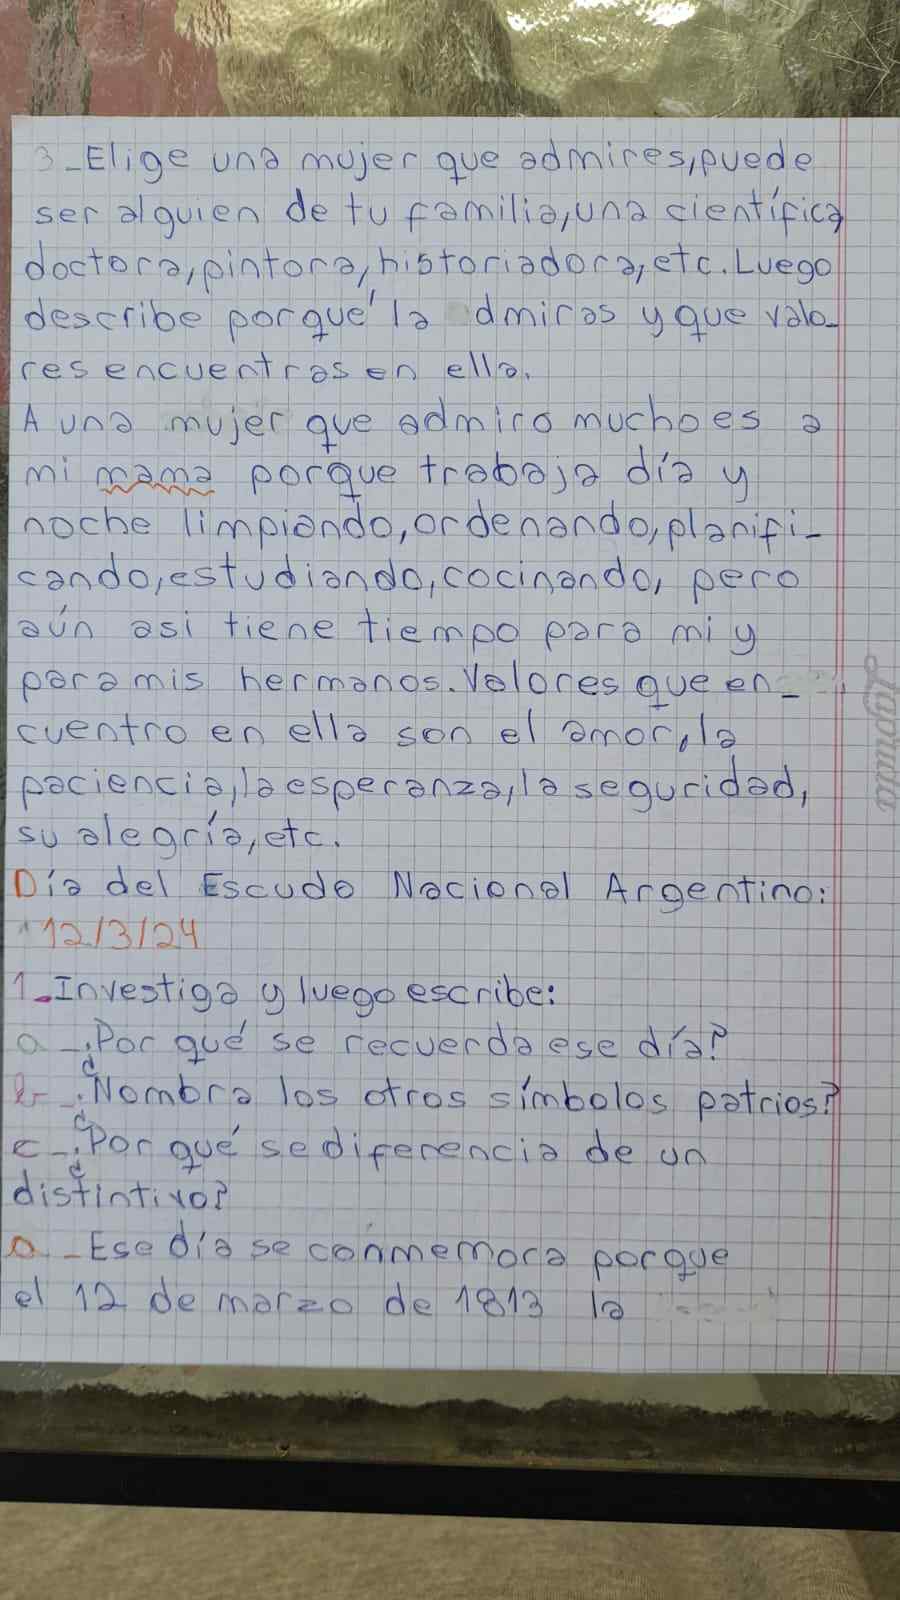 3_Elige una mujer que admires,puede
ser alguien de tu familia,una científica
doctora,pintora,historiadora,etc.Luego
describe porqué la dmiras y que valo_
res encuentras en ella.
A una mujer que admiro mucho es a
mi mama porque trabaja día y
noche limpiando,ordenando,planifi-
cando,estudiando,cocinando, pero
aún asi tiene tiempo para mi y
para mis hermanos.Valores que en_
cuentro en ella son el amor,la
paciencia,la esperanza,la seguridad,
su alegría,etc.
Laprida
Día del Escudo Nacional Argentino:
12/3/24
1_Investiga y luego escribe:
a_¿Por qué se recuerda ese día?
b_¿Nombra los otros símbolos patrios?
c_¿Por qué se diferencia de un
distintivo?
a_Ese día se conmemora porque
el 12 de marzo de 1813 la